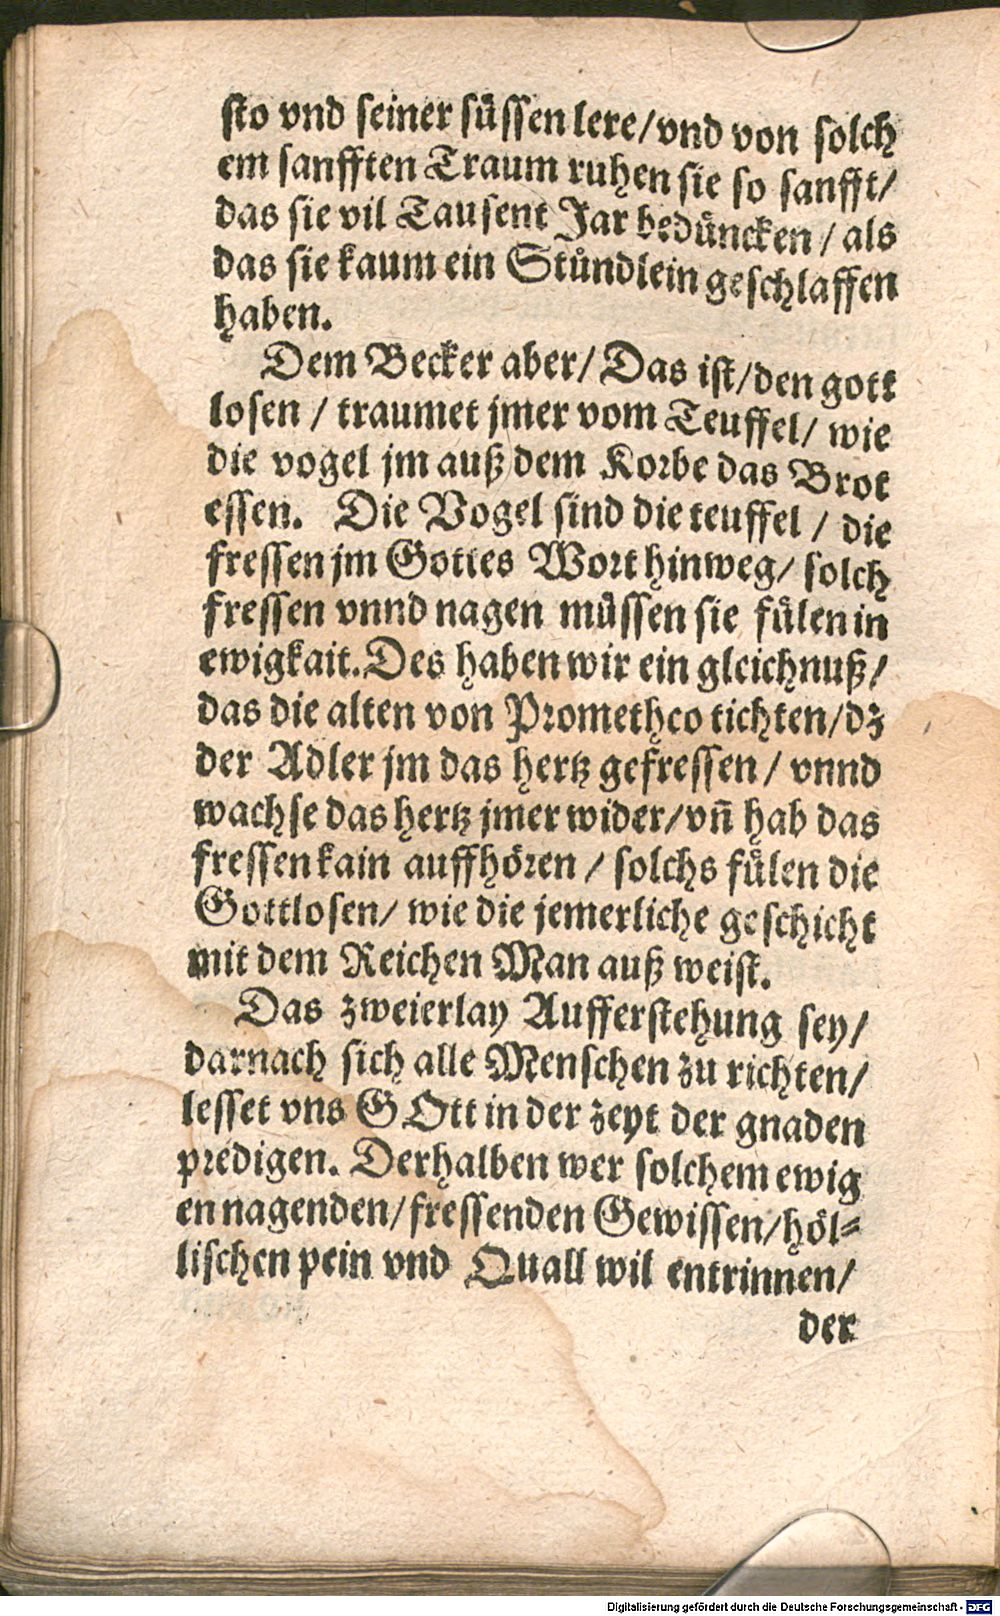 sto vnd seiner süssen lere/vnd von solch
em sanfften Traum ruhen sie so sanfft/
das sie vil Tausent Jar bedüncken / als
das sie kaum ein Stündlein geschlaffen
haben.
Dem Becker aber/ Das ist/den gott
losen / traumet jmer vom Teuffel/ wie
die vogel jm auß dem Korbe das Brot
essen. Die Vogel sind die teuffel / die
fressen jm Gottes Wort hinweg/ solch
fressen vnnd nagen müssen sie fülen in
ewigkait. Des haben wir ein gleichnuß/
das die alten von Prometheo tichten/dz
der Adler jm das hertz gefressen/ vnnd
wachse das hertz jmer wider/vñ hab das
fressen kain auffhören / solchs fülen die
Gottlosen/ wie die jemerliche geschicht
mit dem Reichen Man auß weist.
Das zweierlay Aufferstehung sey/
darnach sich alle Menschen zu richten/
lesset vns GOtt in der zeyt der gnaden
predigen. Derhalben wer solchem ewig
en nagenden/fressenden Gewissen/höl⸗
lischen pein vnd Quall wil entrinnen/
der
Digitalisierung gefördert durch die Deutsche Forschungsgemeinschaft - DFG